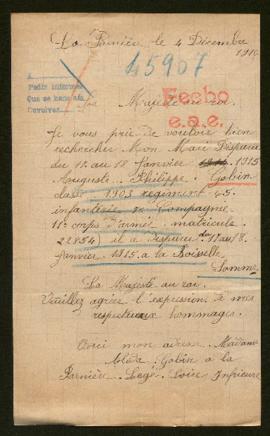 La Parnière le 4 Décembre
1915
45907
A
Pedir informes
Que se han
Devolver
Fecho
e.a.e.
Sa Majesté au roi
Je vous prie de vouloir bien
rechercher Mon Mari Disparu
du 17 au 18 Janvier 1915
Auguste Philippe Gobin
classe 1903 regiment 65
infanterie Compagnie
11e corps d'armée matricule
et a disparu du 17 au 18
Janvier 1915 a la Boiselle
Somme
Sa Majesté au roi
Veuillez agréer l'expression de mes
respectueux hommages.
Voici mon adresse Madame
Gobin a la
Parnière Legé Loire Inférieure